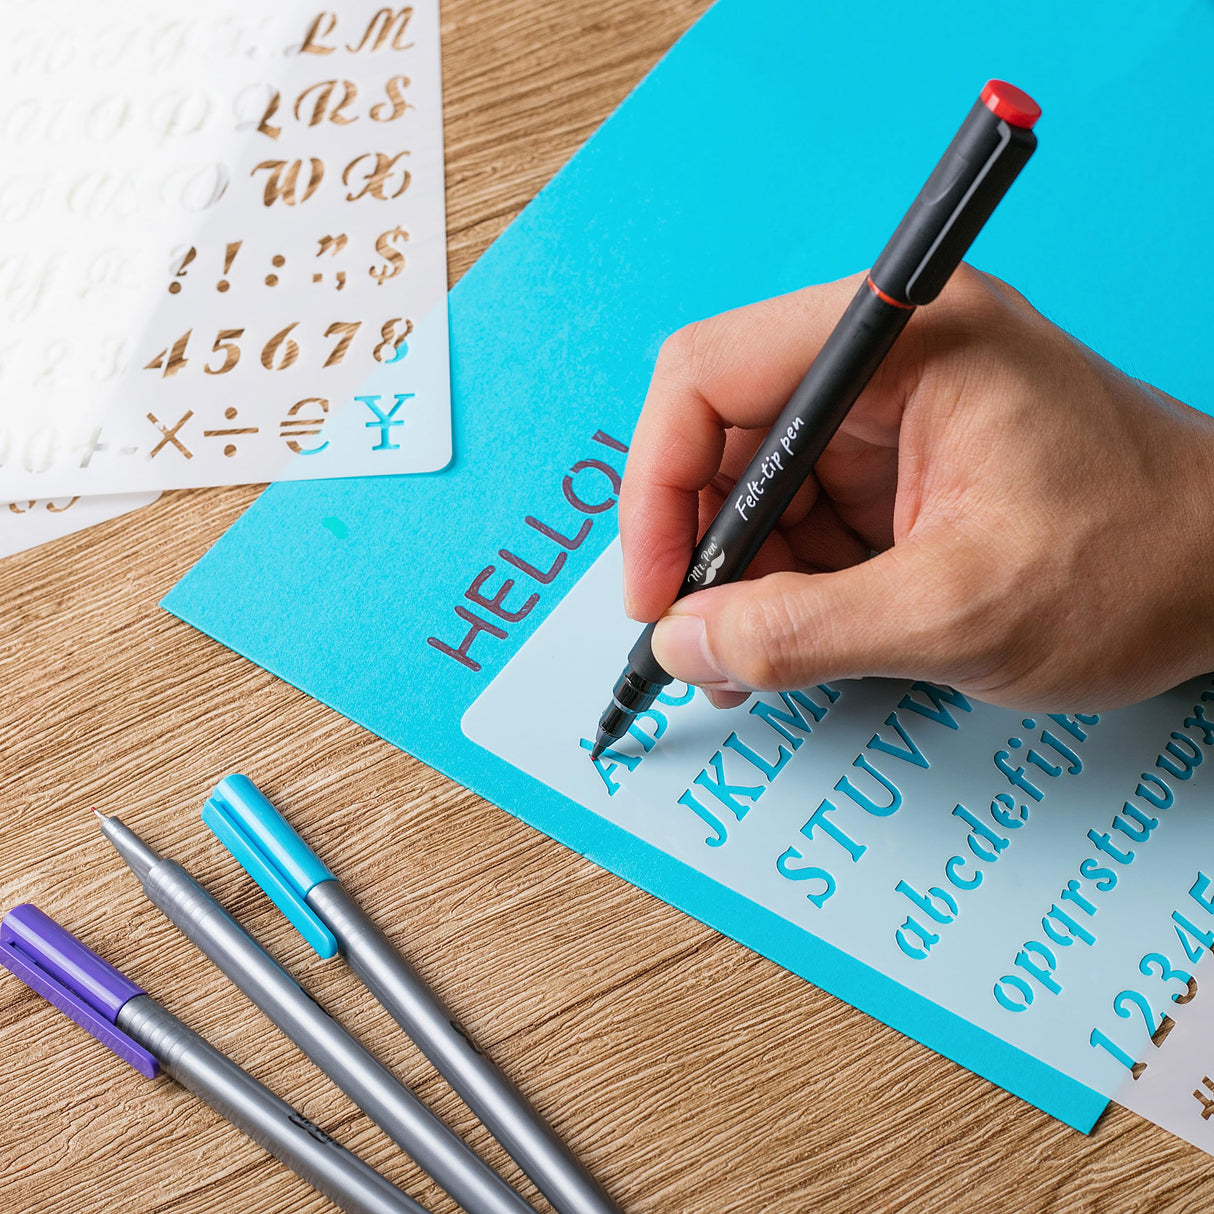 L M
Q R S
W X
? ! : " ; $
4 5 6 7 8
+ - × ÷ € ¥
HELLO!
Felt-tip pen
Mr. Pen®
ABC
JKLM
STUVW
abcdefijk
opqrstuvwx
12345
#